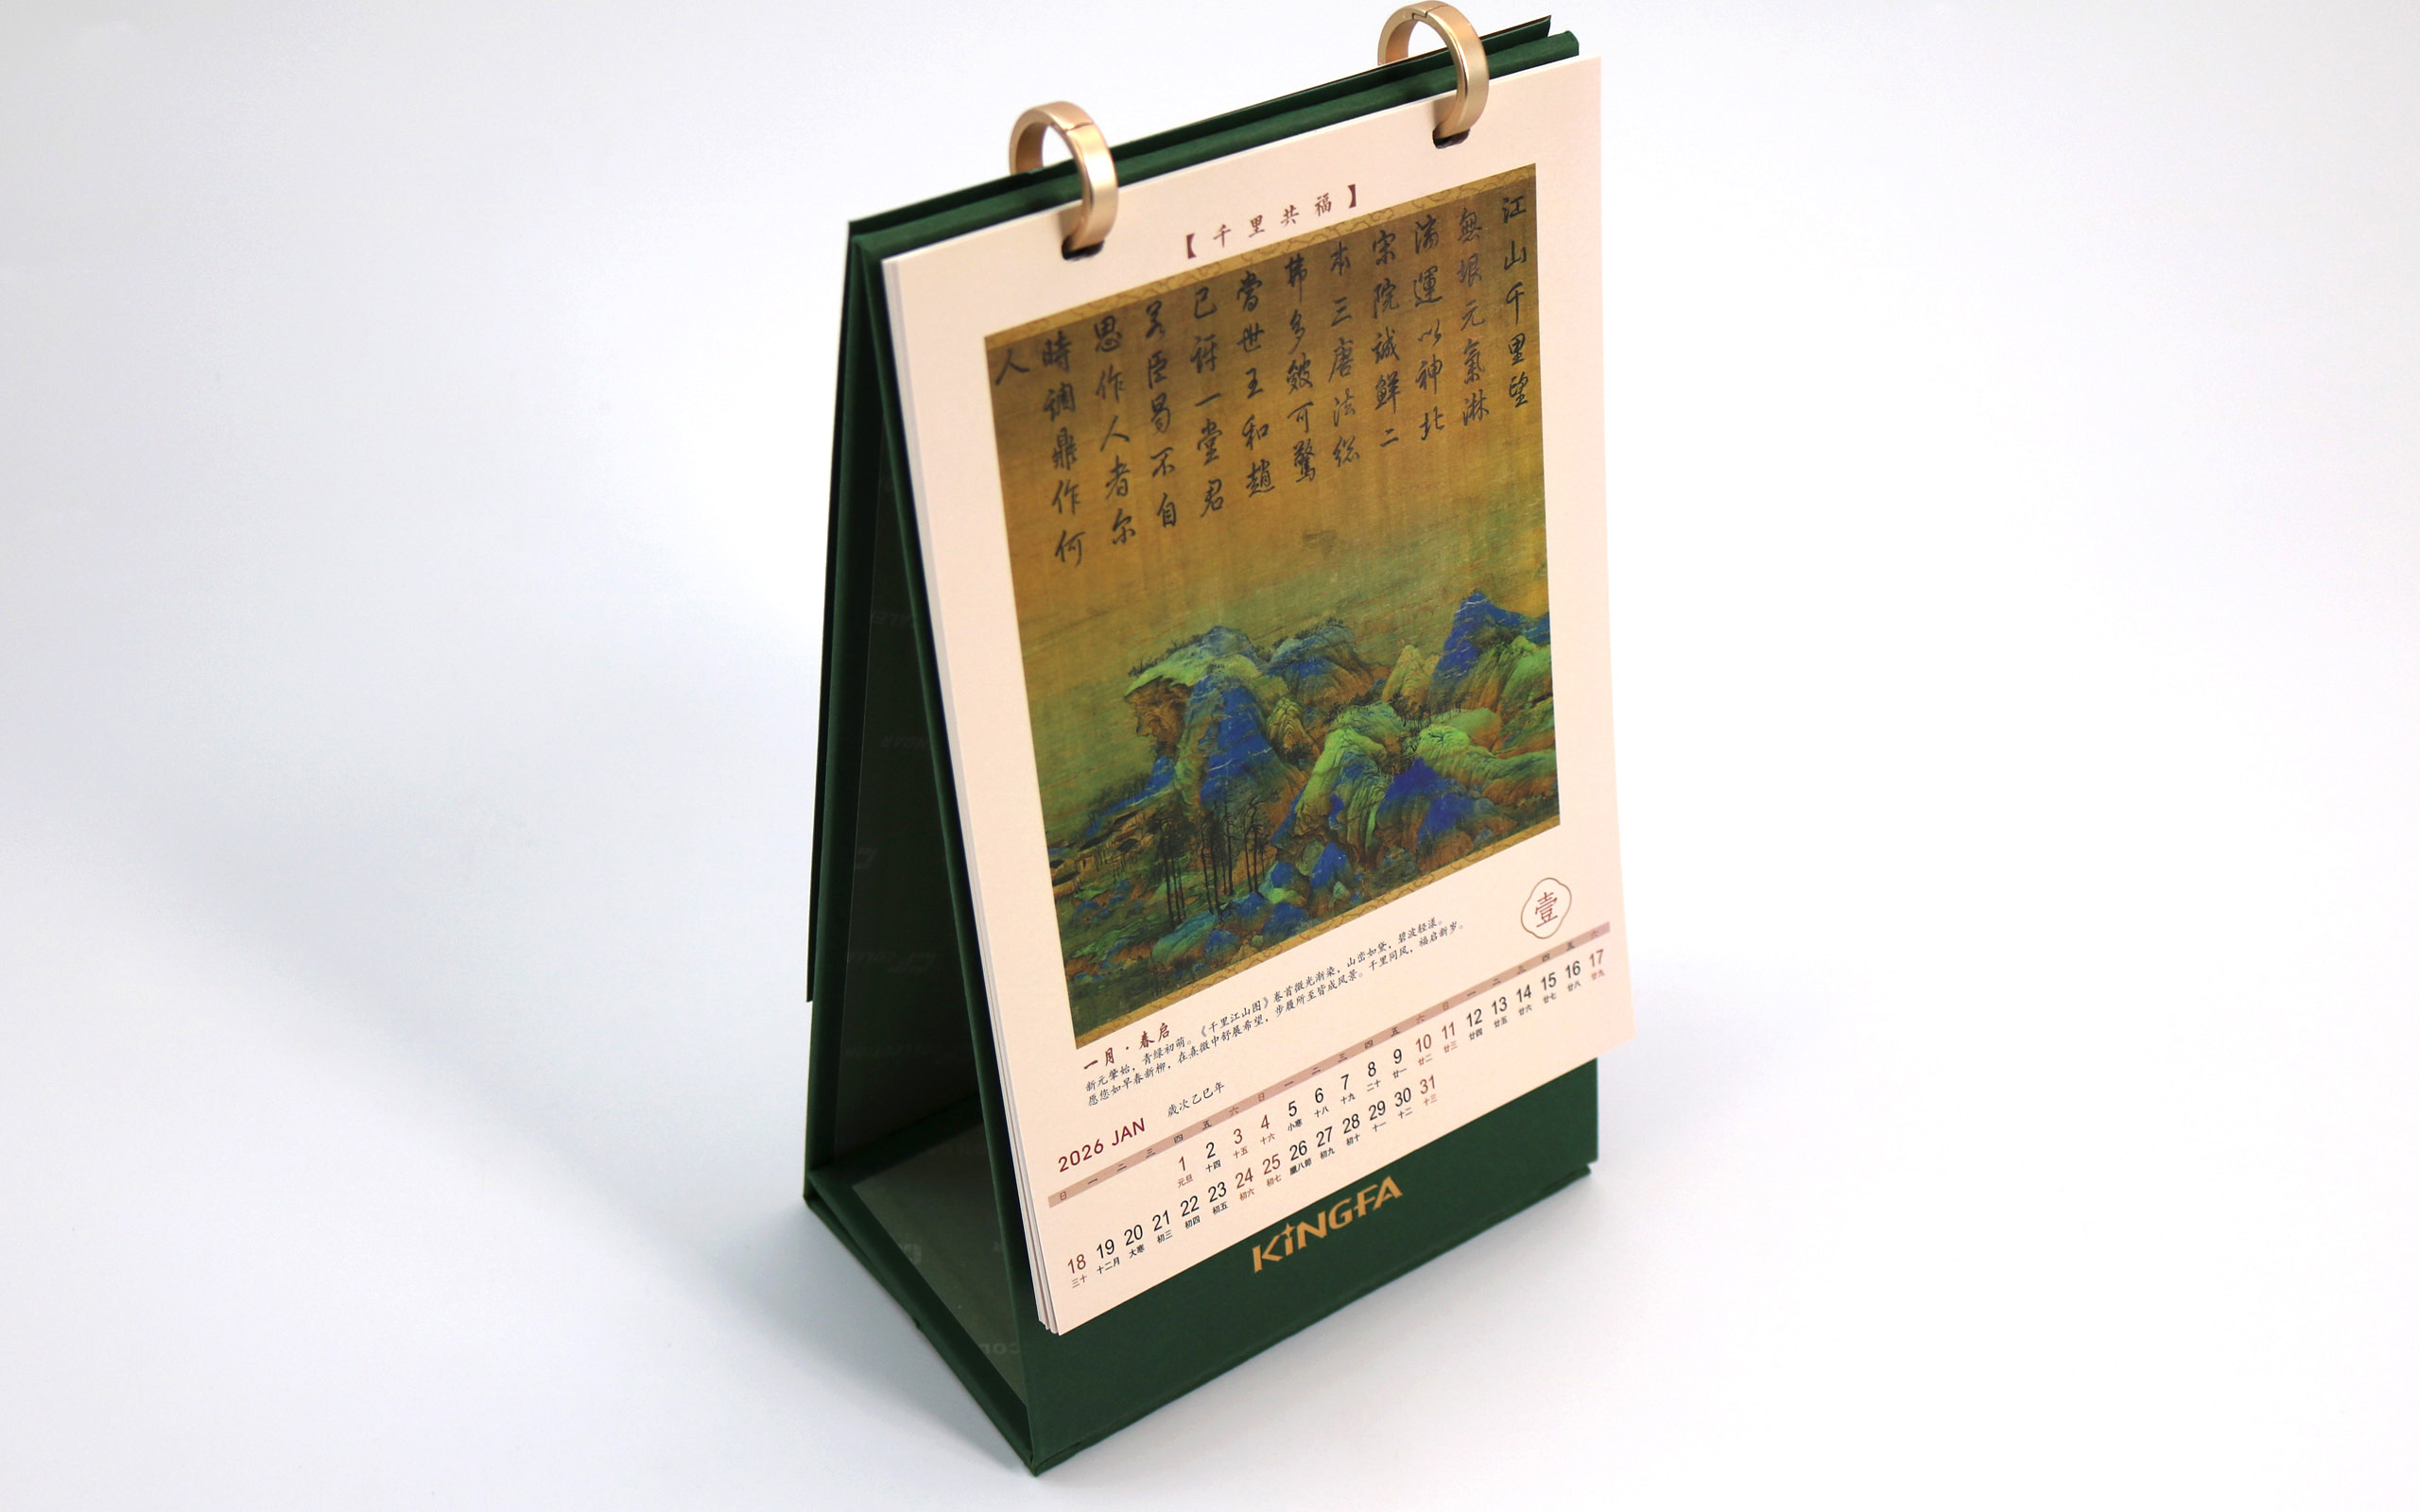 【千里共福】
江山千里望
無垠元氣淋
漓運以神北
宋院誠鮮二
本三唐法総
弗多皴可驚
當世王和趙
已訝一堂君
若臣曷不自
思作人者尔
時調鼎作何
人
壹
一月 · 春启
新元肇始,青绿初萌。《千里江山图》卷首微光渐染,山峦如黛,碧波轻漾。
愿您如早春新柳,在熹微中舒展希望,步履所至皆成风景。千里同风,福启新岁。
2026 JAN 歲次乙巳年
日 一 二 三 四 五 六 日 一 二 三 四 五 六 日 一 二 三 四 五 六
1 2 3 4 5 6 7 8 9 10 11 12 13 14 15 16 17
元旦 十四 十五 十六 小寒 十八 十九 二十 廿一 廿二 廿三 廿四 廿五 廿六 廿七 廿八 廿九
18 19 20 21 22 23 24 25 26 27 28 29 30 31
三十 十二月 大寒 初三 初四 初五 初六 初七 臘八節 初九 初十 十一 十二 十三
KINGFA